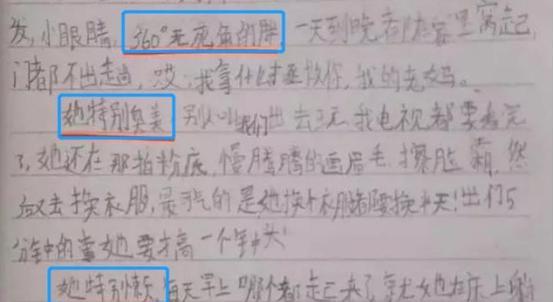 发,小眼睛,360°无死角的胖 一天到晚都在家里窝起
门都不出走尚,哎,我拿什么拯救你,我的老妈。
她特别臭美,别人叫我们出去玩我电视都要看完
了,她还在那拍粉底,慢腾腾的画眉毛,擦脸霜,然
后又去换衣服,最气的是她换个衣服都要换半天!出门5
分钟的事她要搞一个钟头!
她特别懒,每天早上哪个都起来了,就她在床上